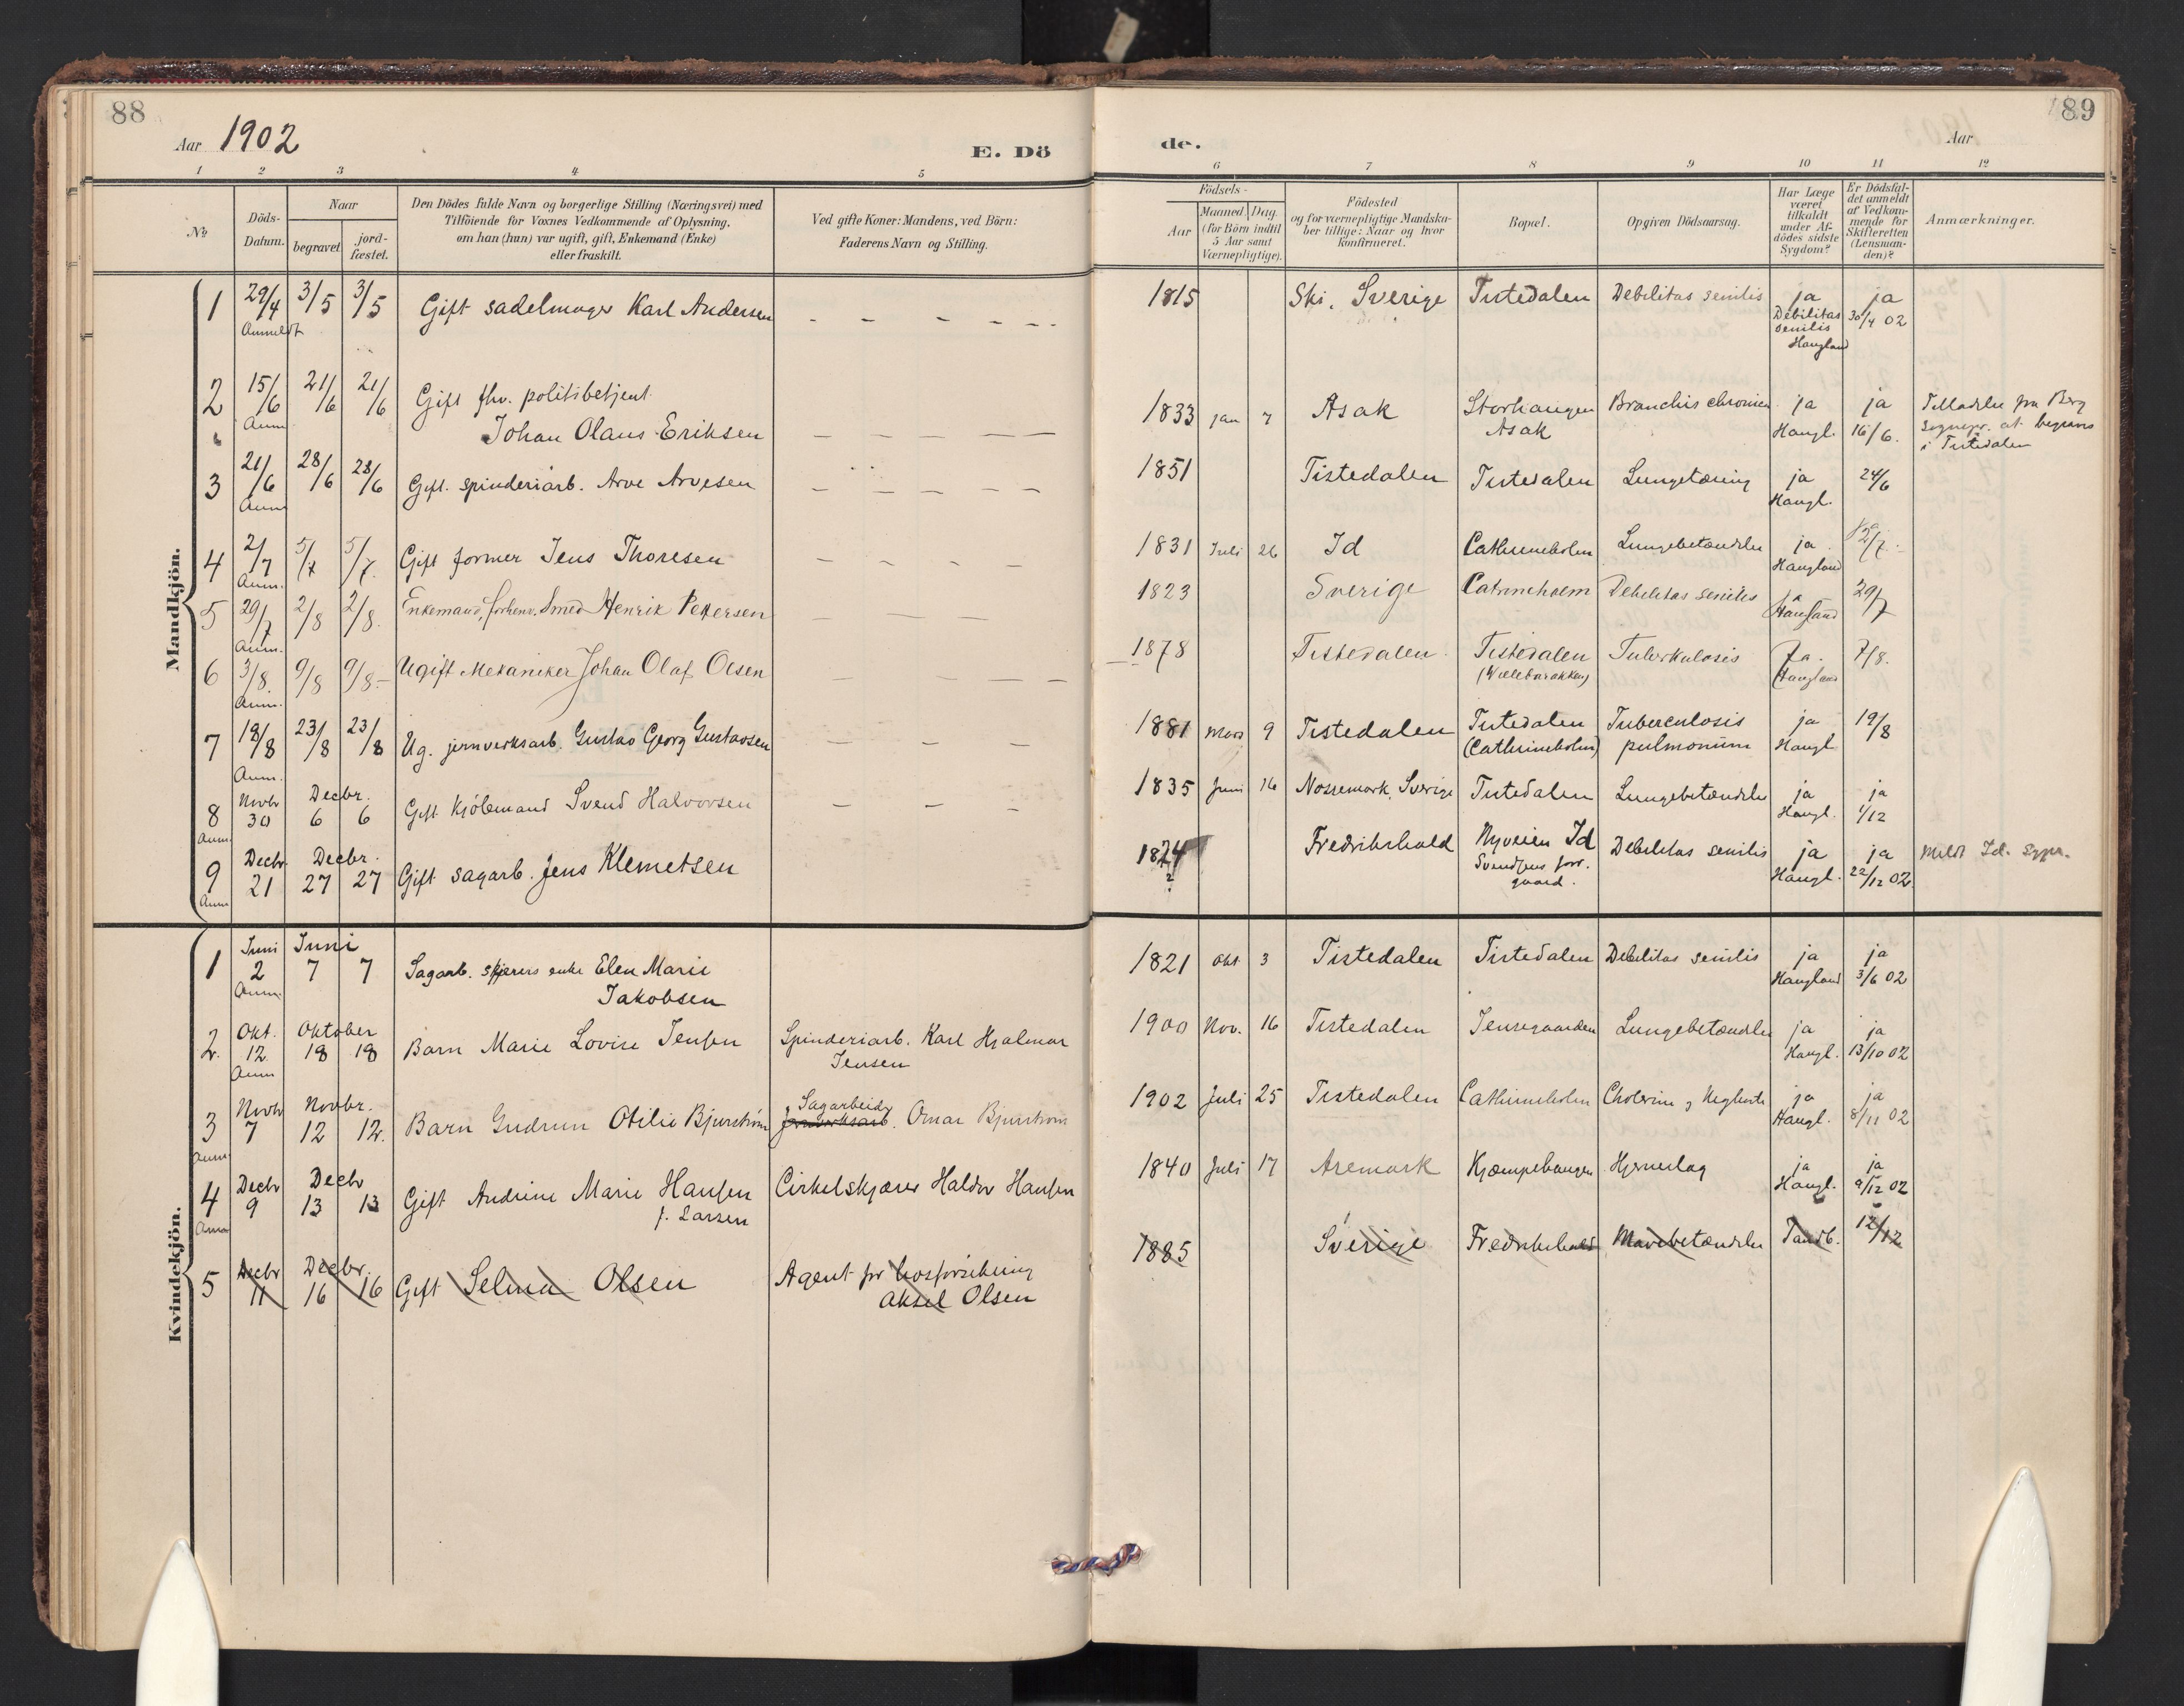 88
Aar 1902
E. Dö
1 2 3 4 5
№
Döds-
Datum.
Naar
begravet
jord-
fæstet.
Den Dödes fulde Navn og borgerlige Stilling (Næringsvei) med
Tilföiende for Voxnes Vedkommende af Oplysning.
om han (hun) var ugift, gift, Enkemand (Enke)
eller fraskilt.
Ved gifte Koner: Mandens, ved Börn:
Faderens Navn og Stilling.
Mandkjön.
1 29/4 3/5 3/5 Gift sadelmager Karl Andersen
Anmeldt
2 15/6 21/6 21/6 Gift fhv. politibetjent
Anm Johan Olaus Eriksen
3 21/6 28/6 28/6 Gift. spinderiarb. Arve Arvesen
Anm
4 2/7 5/7 5/7. Gift former Jens Thoresen
Anm.
5 29/7 2/8 2/8. Enkemand, forhenv. Smed Henrik Pettersen
Anm.
6 3/8. 9/8 9/8.- Ugift Mekaniker Johan Olaf Olsen
Anm.
7 18/8 23/8 23/8 Ug. jernverksarb. Gustav Georg Gustavsen
Anm.
Novbr Decbr.
8 30 6 6 Gift Kjöbmand Svend Halvorsen
Anm
Decbr. Decbr.
9 21 27 27 Gift sagarb. Jens Klemetsen
Anm
Kvindekjön.
Juni Juni
1 2 7 7 Sagarb. skjærers enke Elen Marie
Anm. Jakobsen
Okt. Oktober
2. 12. 18 18 Barn Marie Lovise Jensen Spinderiarb. Karl Hjalmar
Anm Jensen
Novbr Novbr. Sagarbeider
3 7 12 12. Barn Gudrun Otilie Bjurström Jernverksarb. Omar Bjurström
Anm
Decbr Decbr
4 9 13 13 Gift Andrine Marie Hansen Cirkelskjærer Haldor Hansen
Anm f. Larsen
Decbr Decbr.
5 11 16 16 Gift Selma Olsen Agent for
Aksel Olsen
89
de.
Aar
6 7 8 9 10 11 12
Födsels-
Aar
Maaned. Dag.
(for Börn indtil
5 Aar samt
Værnepligtige).
Födested
og for værnepligtige Mandska-
ber tillige: Naar og hvor
konfirmeret.
Bopæl.
Opgiven Dödsaarsag.
Har Læge
været
tilkaldt
under Af-
dödes sidste
Sygdom?
Er Dödsfal-
det anmeldt
af Vedkom-
mende for
Skifteretten
(Lensman-
den)?
Anmærkninger.
1815 Ski, Sverige Tistedalen Debilitas senilis ja ja
Debilitas 30/4 02
senilis
Haugland
1833 jan 7 Asak Storhaugen Bronchis chronica ja ja Tilladelse fra Berg
Asak Haugl. 16/6. Sognepr. at begraves
i Tistedalen
1851 Tistedalen Tistedalen Lungetæring ja 24/6
Haugl.
1831 Juli 26 Id Cathrineholm Lungebetændelse ja
Haugland
1823 Sverige Catrineholm Debilitas senilis Ja 29/7
Haugland
1878 Tistedalen Tistedalen Tuberkulosis Ja. 7/8.
(Willebarakken) Haugland
1881 Mars 9 Tistedalen Tistedalen Tuberculosis ja 19/8
(Cathrineholm) pulmonum Haugl
1835 Juni 16 Nossemark, Sverige Tistedalen Lungebetændelse ja ja
Haugl. 1/12
1824 Fredrikshald Nyveien Id Debilitas senilis ja ja Meldt Id. Sgpr.
? Svendsens Haugl. 22/12 02
gaard.
1821 Okt 3 Tistedalen Tistedalen Debilitas senilis ja ja
Haugland 3/6 02
1900 Nov. 16 Tistedalen Jensegaarden Lungebetændelse ja ja
Haugl. 13/10 02
1902 Juli 25 Tistedalen Cathrineholm Cholerine ja ja
Haugl. 8/11 02
1840 Juli 17 Aremark Kjæmpehaugen Hjerneslag ja ja
Haugl. 9/12 02
1885 Sverige Fredrikshald Mavebetændelse Tandb. 12/12